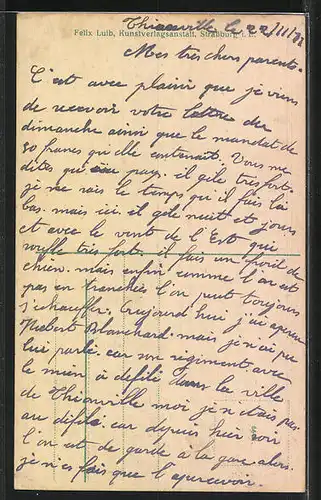 Thionville le 22/11/
Felix Luib, Kunstverlagsanstalt, Strassburg i. E.
Mes tres chers parents.
C'est avec plaisir que je viens
de recevoir votre lettre de
dimanche ainsi que le mandat de
francs qu'elle contenait. Vous me
dites qu'au pays il gèle tres fort.
je ne sais le temps qu'il fait là
bas. mais ici il gèle nuit et jours
et avec le vent de l'Est qui
souffle très fort il fais un froid de
chien. mais enfin comme l'on est
pas en tranchées l'on peut toujours
s'echauffer. Aujourd'hui j'ai aperçu
Blanchard. mais je n'ai pu
lui parlé. car son régiment avec
le mien à défilé dans la ville
de Thionville moi je n'étais pas
au défilé. car depuis hier soir
l'on est de garde à la gare alors
je n'es fais que l'apercevoir.